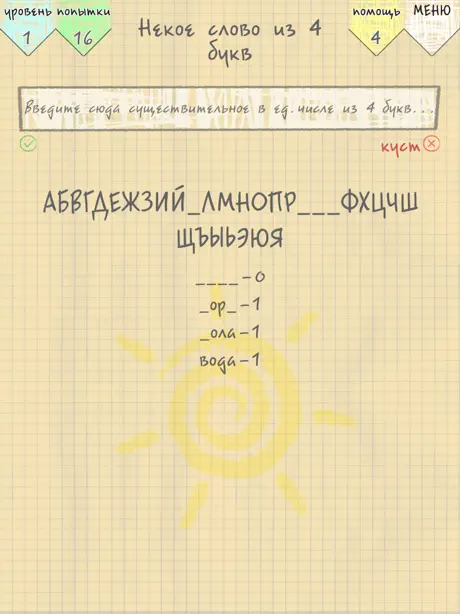 уровень попытки
помощь МЕНЮ
1 16
4
Некое слово из 4
букв
Введите сюда существительное в ед. числе из 4 букв...
куст
АБВГДЕЖЗИЙ_ЛМНОПР___ФХЦЧШ
ЩЪЫЬЭЮЯ
____-0
_ор_-1
_ола-1
вода-1